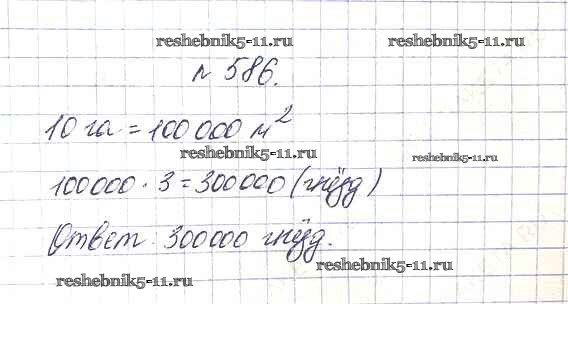 reshebnik5-11.ru reshebnik5-11.ru
№ 586.
10 га = 100 000 м²
reshebnik5-11.ru reshebnik5-11.ru
100000 · 3 = 300000 (гнёзд)
Ответ: 300000 гнёзд.
reshebnik5-11.ru
reshebnik5-11.ru